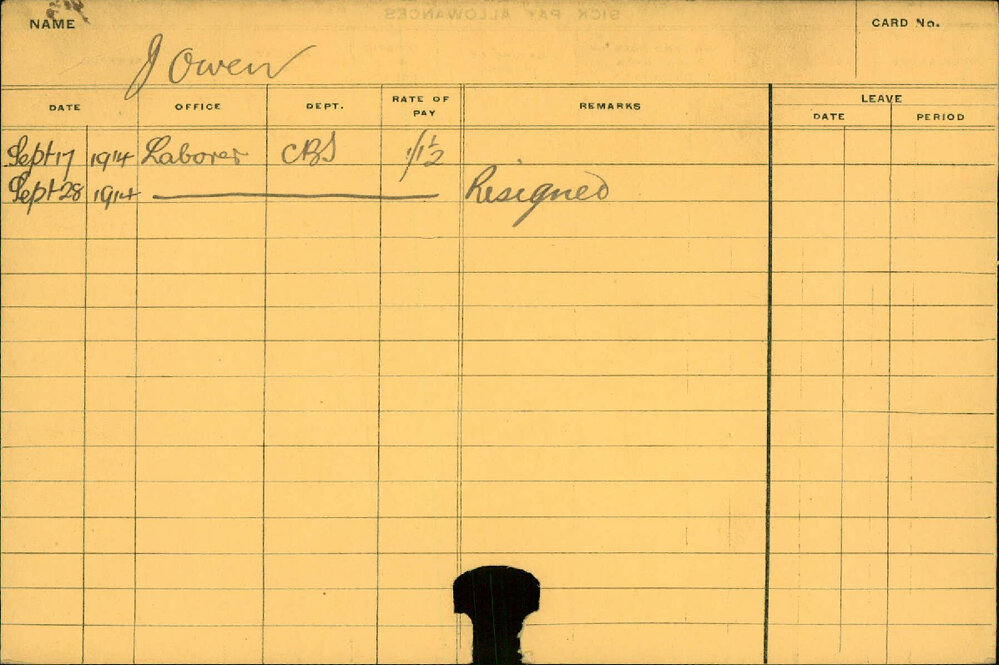 NAME
CARD No.
J Owen
DATE OFFICE DEPT. RATE OF PAY REMARKS LEAVE
DATE PERIOD
Sept 17 1914 Laborer CBS 1/1½
Sept 28 1914 Resigned